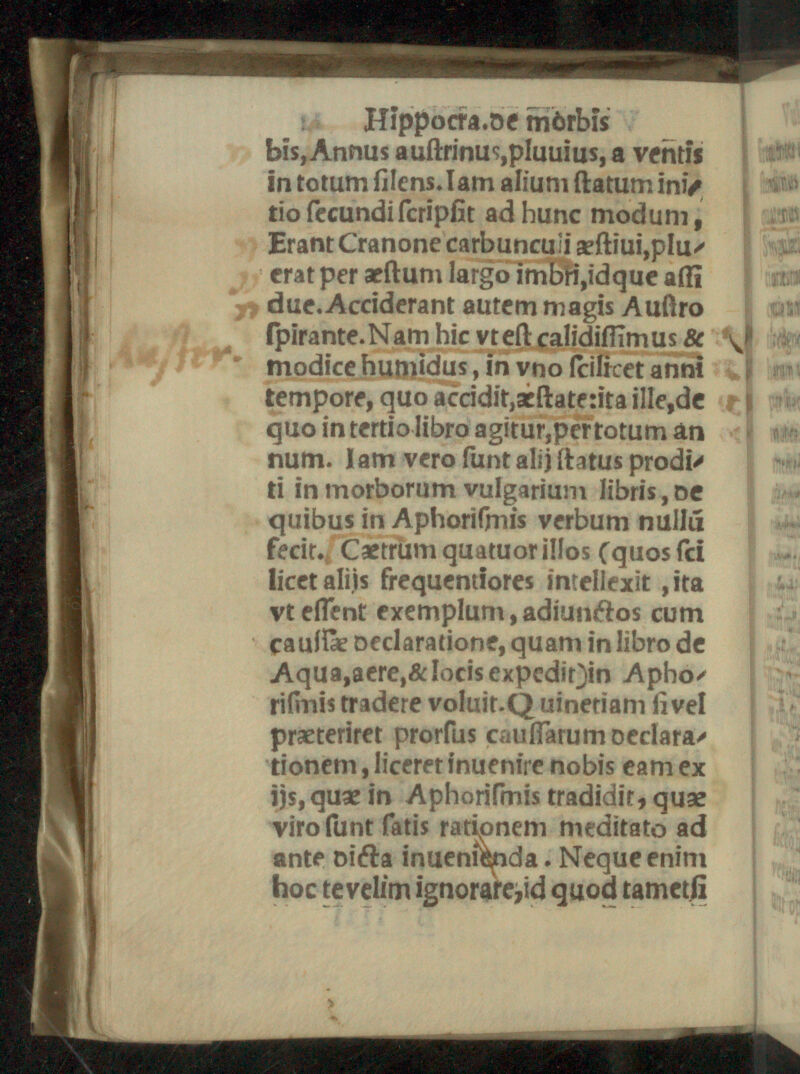 Hippocra.De morbis
bis, Annus auſtrinus, pluuius, a ventis
in totum ſilens. Iam alium ſtatum ini⸗
tio ſecundi ſcripſit ad hunc modum,
Erant Cranone carbunculi æſtiui, plu⸗
erat per æſtum largo imbri, idque aſſi
due. Acciderant autem magis Auſtro
ſpirante. Nam hic vt eſt calidiſſimus &
Auſter.
modice humidus, in vno ſcilicet anni
tempore, quo accidit, æſtate: ita ille, de
quo in tertio libro agitur, per totum an
num. Iam vero ſunt alij ſtatus prodi⸗
ti in morborum vulgarium libris, De
quibus in Aphoriſmis verbum nullũ
fecit. Cætrum quatuor illos (quos ſci
licet aliis frequentiores intellexit, ita
vt eſſent exemplum, adiunctos cum
cauſſæ Declaratione, quam in libro de
Aqua, aere, & locis expedit) in Apho⸗
riſmis tradere voluit. Quinetiam ſi vel
præteriret prorſus cauſſarum Declara⸗
tionem, liceret inuenire nobis eam ex
ijs, quæ in Aphoriſmis tradidit, quæ
viro ſunt ſatis rationem meditato ad
ante Dicta inuenienda. Neque enim
hoc te velim ignorare, id quod tametſi